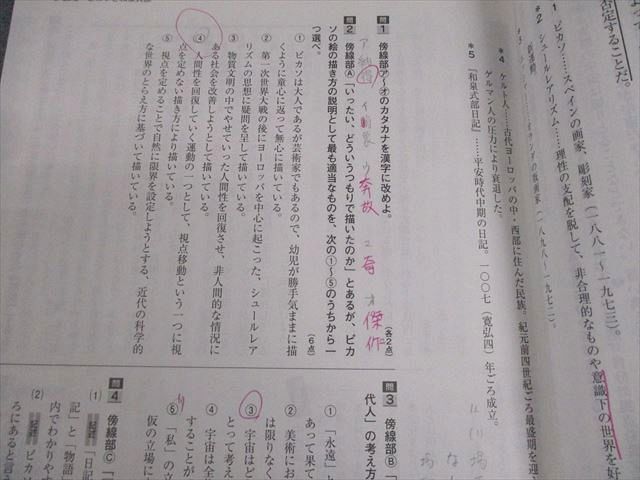 否定することだ。
1 ピカソ……スペインの画家、彫刻家（一八八一〜一九七三）。
*2 シュールレアリスム……理性の支配を脱して、非合理的なものや意識下の世界を好
*4 ケルト人……古代ヨーロッパの中・西部に住んだ民族。紀元前四世紀ごろ最盛期を迎
ゲルマン人の圧力により衰退した。
*5 『和泉式部日記』……平安時代中期の日記。一〇〇七（寛弘四）年ごろ成立。
問1 傍線部ア〜オのカタカナを漢字に改めよ。
（各2点）
ア イ ウ 奔放 エ 奇 オ 傑作
問2 傍線部A「いったい、どういうつもりで描いたのか」とあるが、ピカ
ソの絵の描き方の説明として最も適当なものを、次の①〜⑤のうちから一
つ選べ。
（6点）
① ピカソは大人であるが芸術家でもあるので、幼児が勝手気ままに描
くように童心に返って無心に描いている。
② 第一次世界大戦の後にヨーロッパを中心に起こった、シュールレア
リズムの思想に疑問を呈して描いている。
③ 物質文明の中でやせていった人間性を回復させ、非人間的な情況に
ある社会を改善しようとして描いている。
④ 人間性を回復していく運動の一つとして、視点移動という一つに視
点を定めない描き方により描いている。
⑤ 視点を定めることで自然に限界を設定しようとする、近代の科学的
な世界のとらえ方に基づいて描いている。
問3 傍線部B「
代人」の考え方
① 「永遠」と
あって果て
② 美術にお
は限りなく
③ 宇宙はど
とって考え
④ 宇宙は全
することが
⑤ 「私」の立
仮の立場に
問4 傍線部C「
(1) 記述 「日記
記」と「物語
内でわかりやす
(2) 記述 ピカソ
ろにあると言う